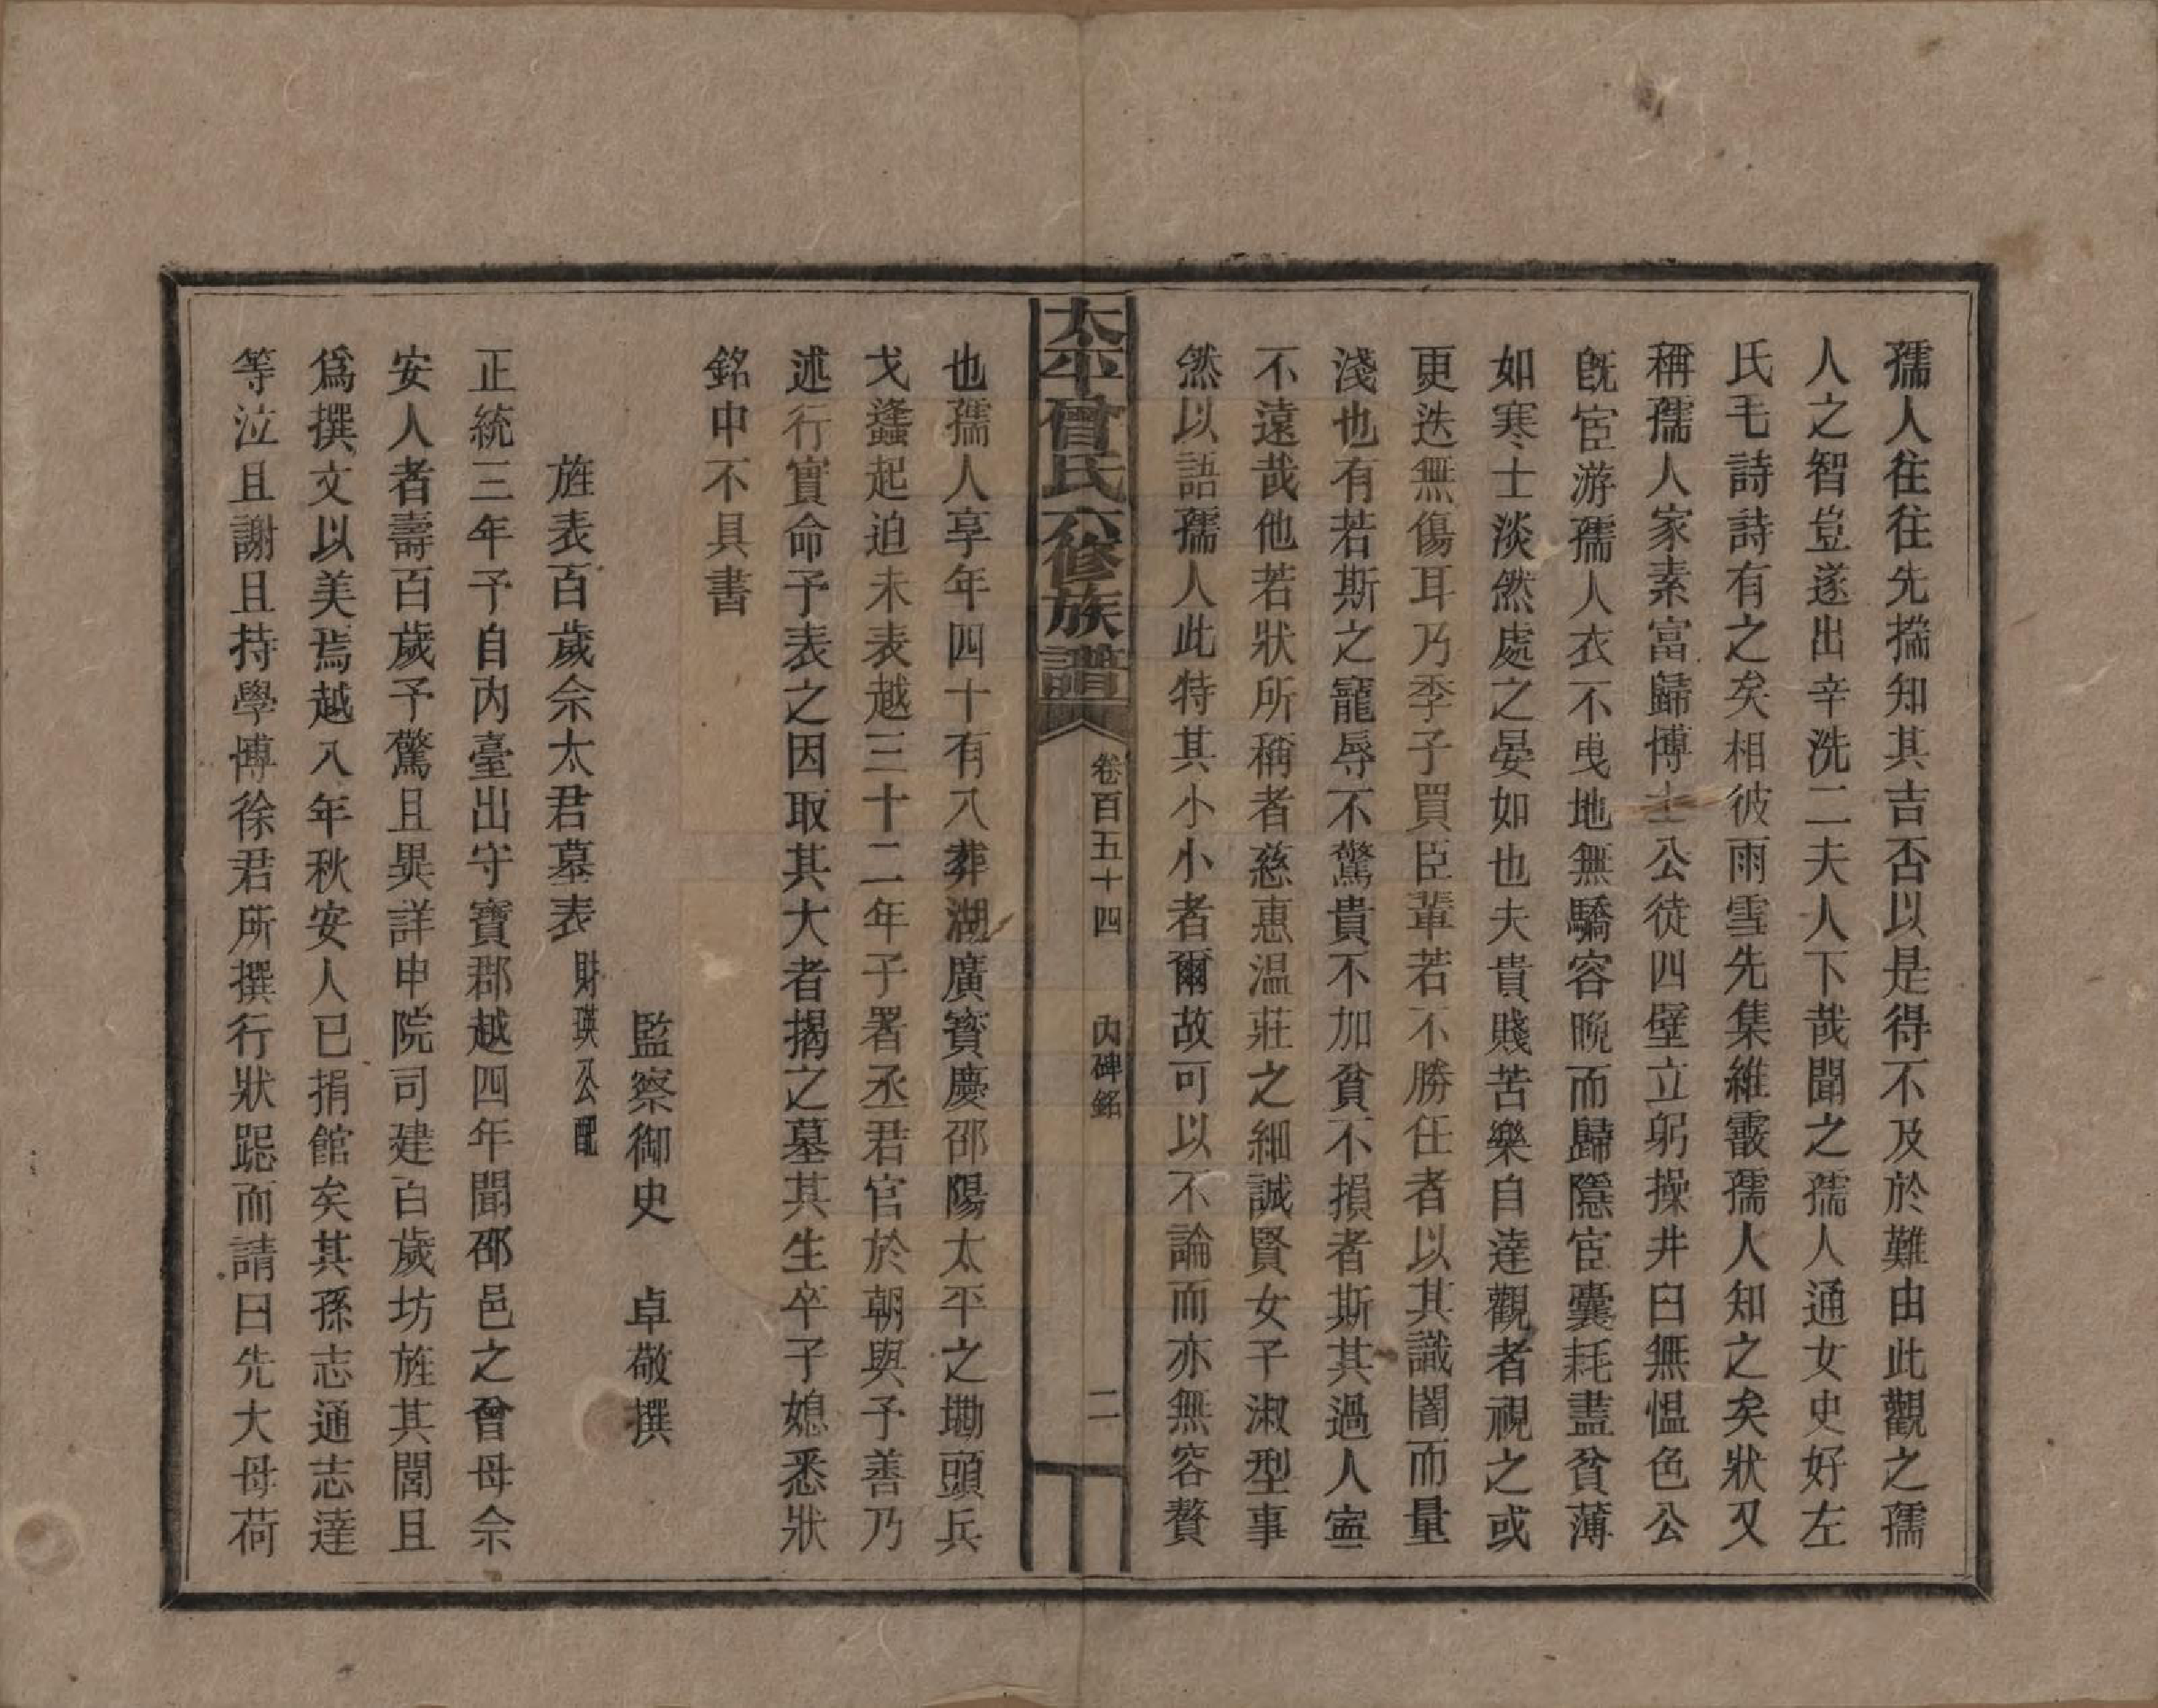 孺人往往先揣知其吉否以是得不及於難由此觀之孺
人之智豈遂出辛洗二夫人下哉聞之孺人通女史好左
氏毛詩詩有之矣相彼雨雪先集維霰孺人知之矣狀又
稱孺人家素富歸博士公徒四壁立躬操井臼無慍色公
旣宦游孺人衣不曳地無驕容晩而歸隱宦囊耗盡貧薄
如寒士淡然處之晏如也夫貴賤苦樂自達觀者視之或
更迭無傷耳乃季子買臣輩若不勝任者以其識闇而量
淺也有若斯之寵辱不驚貴不加貧不損者斯其過人寍
不遠哉他若狀所稱者慈惠温莊之細誠賢女子淑型事
然以語孺人此特其小小者爾故可以不論而亦無容贅
太平曾氏六修族譜
卷百五十四
內碑銘
二
也孺人享年四十有八葬湖廣寳慶邵陽太平之墈頭兵
戈蠭起迫未表越三十二年子署丞君官於朝與予善乃
述行實命予表之因取其大者揭之墓其生卒子媳悉狀
銘中不具書
監察御史　卓敬撰
旌表百歲佘太君墓表 財瑛公配
正統三年予自內臺出守寶郡越四年聞邵邑之曾母佘
安人者壽百歲予驚且異詳申院司建百歲坊旌其閭且
爲撰文以美焉越八年秋安人已捐館矣其孫志通志達
等泣且謝且持學博徐君所撰行狀跽而請曰先大母荷